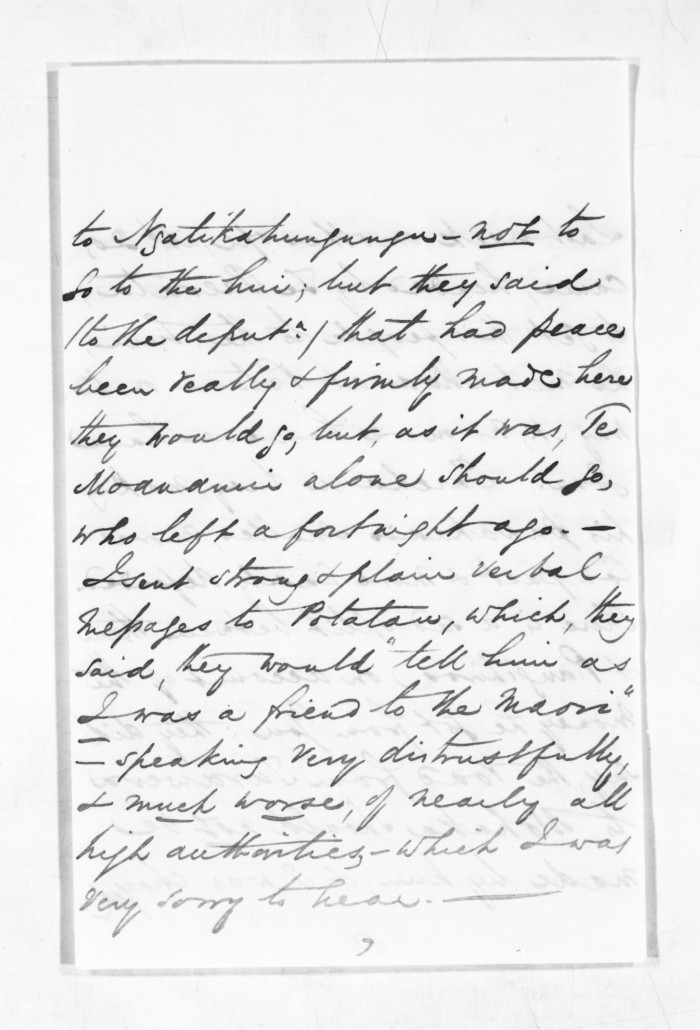 to Ngatikahungungu - not to
go to the hui; but they said
(to the deputn.) that had peace
been really & firmly made here
they would go, but, as it was, Te
Moananui alone should go,
who left a fortnight ago. —
I sent strong & plain verbal
messages to Potatau, which, they
said, they would "tell him as
I was a friend to the Maori"
— speaking very distrustfully,
& much worse, of nearly all
high authorities, - which I was
very sorry to hear. —